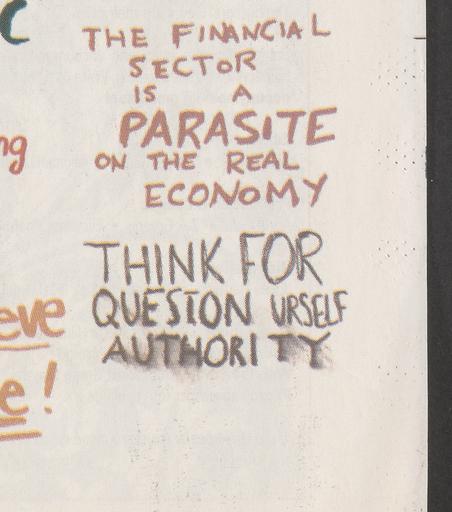 C
THE FINANCIAL
SECTOR
IS A
PARASITE
ON THE REAL
ECONOMY
ng
THINK FOR
QUESTION URSELF
AUTHORITY
eve
e!